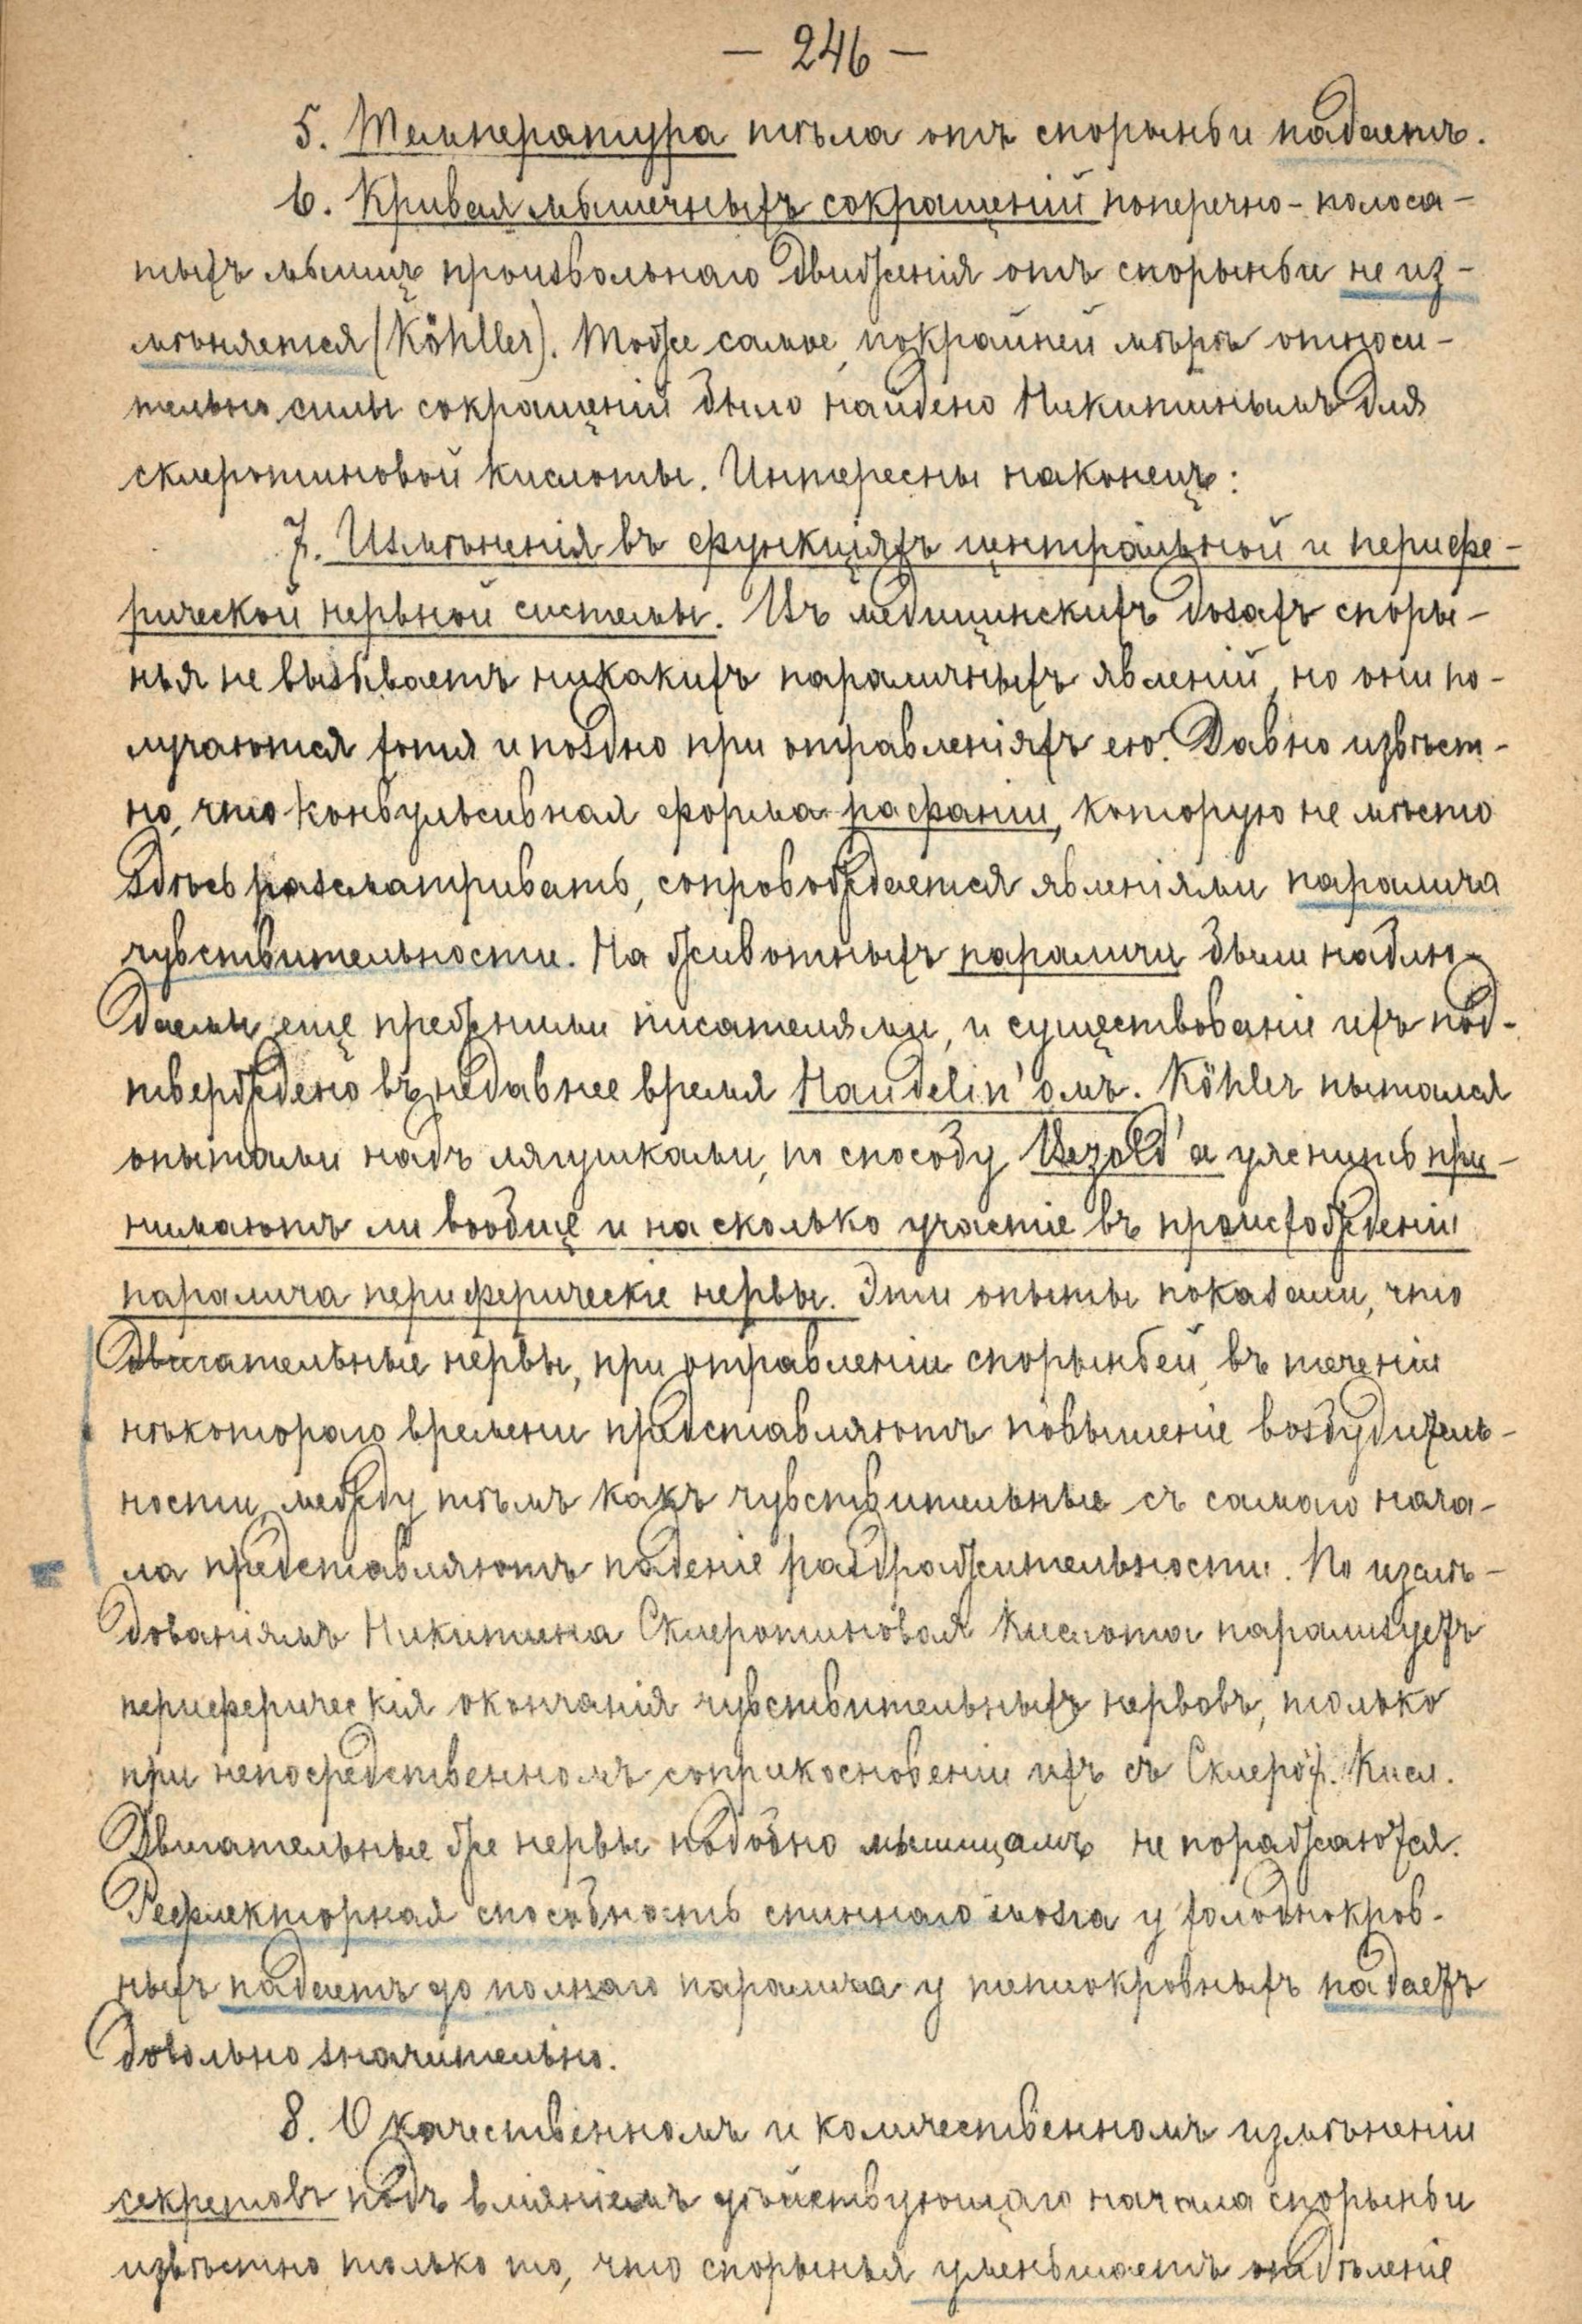 — 246 —
5. Температура тѣла отъ спорыньи падаетъ.
6. Кривая мышечныхъ сокращеній поперечно-полоса-
тыхъ мышцъ произвольнаго движенія отъ спорыньи не из-
мѣняется (Köhller). Тоже самое, покрайней мѣрѣ относи-
тельно силы сокращеній было найдено Никитинымъ для
склеротиновой кислоты. Интересны наконецъ:
7. Измѣненія въ функціяхъ центральной и перифе-
рической нервной системы. Въ медицинскихъ дозахъ споры-
нья не вызываетъ никакихъ параличныхъ явленій, но они по-
лучаются хотя и поздно при отравленіяхъ ею. Давно извѣст-
но, что конвульсивная форма рафаніи, которую не мѣсто
здѣсь разсматривать, сопровождается явленіями паралича
чувствительности. На животныхъ параличи были наблю-
даемы еще прежними писателями, и существованіе ихъ под-
тверждено въ недавнее время Haudelin'омъ. Köhler пытался
опытами надъ лягушками, по способу Bezold'а уяснить при-
нимаютъ ли вообще и на сколько участіе въ происхожденіи
паралича периферическіе нервы. Эти опыты показали, что
двигательные нервы, при отравленіи спорыньей, въ теченіи
нѣкотораго времени представляютъ повышеніе возбудитель-
ности, между тѣмъ какъ чувствительные съ самаго нача-
ла представляютъ паденіе раздражительности. По изслѣ-
дованіямъ Никитина Склеротиновая Кислота парализуетъ
периферическія окончанія чувствительныхъ нервовъ, только
при непосредственномъ соприкосновеніи ихъ съ Склерот. Кисл.
Двигательные же нервы подобно мышцамъ не поражаются.
Рефлекторная способность спиннаго мозга у холоднокров-
ныхъ падаетъ до полнаго паралича у теплокровныхъ падаетъ
довольно значительно.
8. О качественномъ и количественномъ измѣненіи
секретовъ подъ вліяніемъ дѣйствующаго начала спорыньи
извѣстно только то, что спорынья уменьшаетъ отдѣленіе